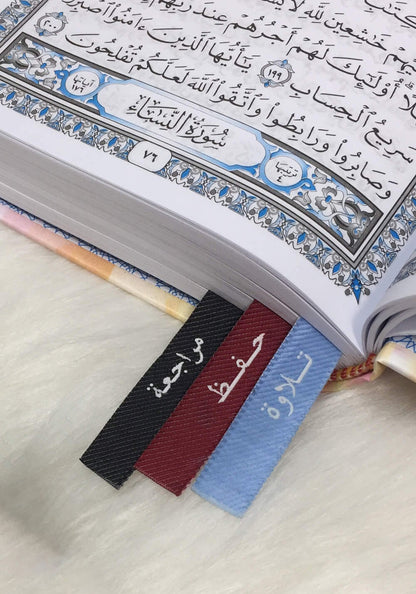 لَهُمْ أَجْرُهُمْ عِندَ رَبِّهِمْ
سَرِيعُ ٱلْحِسَابِ ١٩٩ يَٰٓأَيُّهَا ٱلَّذِينَ ءَامَنُوا۟ ٱصْبِرُوا۟
وَصَابِرُوا۟ وَرَابِطُوا۟ وَٱتَّقُوا۟ ٱللَّهَ لَعَلَّكُمْ تُفْلِحُونَ ٢٠٠
سُورَةُ النِّسَاءِ
٧٦
مراجعة
حفظ
تلاوة